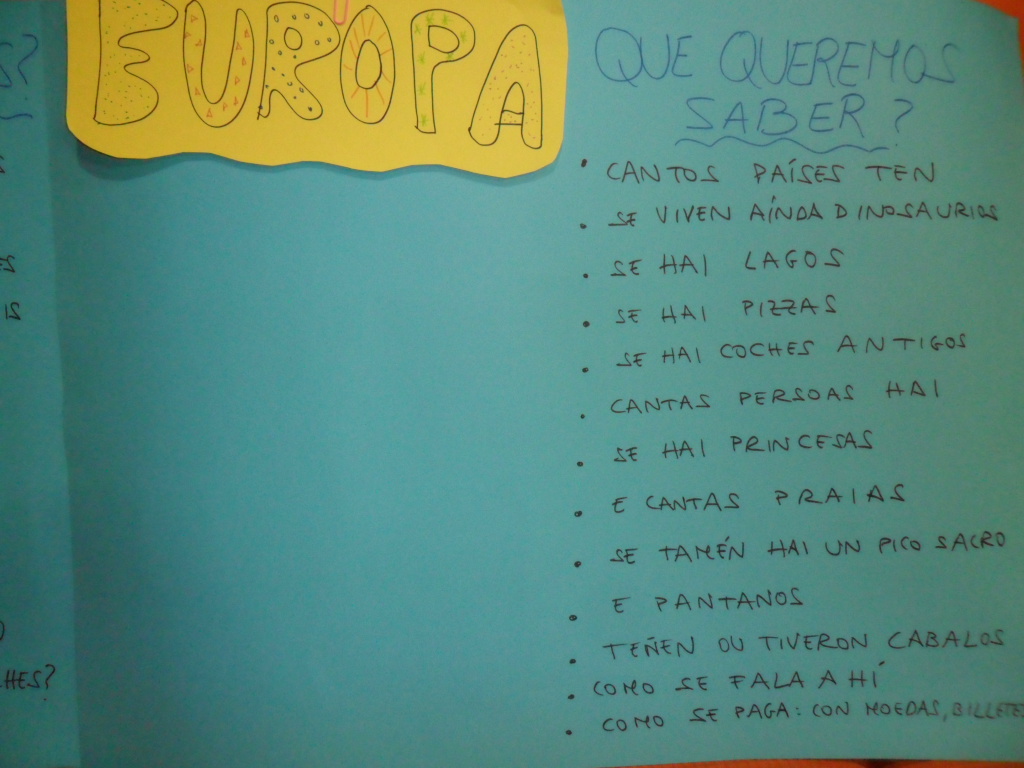 EUROPA
QUE QUEREMOS
SABER?
S?
• CANTOS PAÍSES TEN
• SE VIVEN AÍNDA DINOSAURIOS
• SE HAI LAGOS
• SE HAI PIZZAS
• SE HAI COCHES ANTIGOS
• CANTAS PERSOAS HAI
• SE HAI PRINCESAS
• E CANTAS PRAIAS
• SE TAMÉN HAI UN PICO SACRO
• E PANTANOS
• TEÑEN OU TIVERON CABALOS
• COMO SE FALA AHÍ
• COMO SE PAGA: CON MOEDAS, BILLETES
LHES?